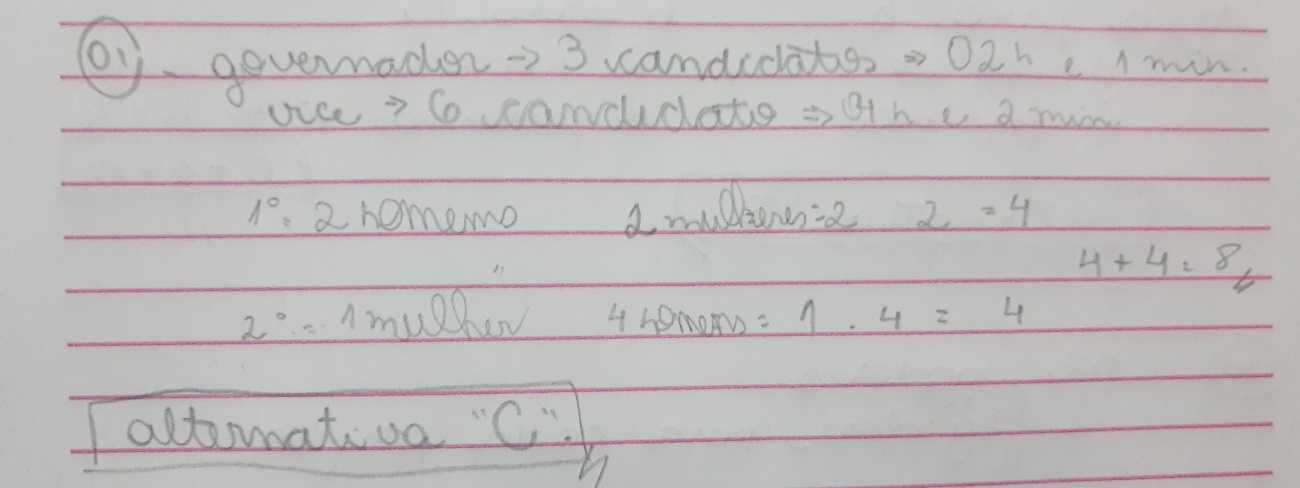 01). governador → 3 candidatos ⇒ 02h e 1 min.
vice → 6 candidato ⇒ 04 h e 2 min.
1° = 2 homens 2 mulheres = 2 . 2 = 4
4 + 4 = 8
2° = 1 mulher 4 homens = 1 . 4 = 4
alternativa "C".